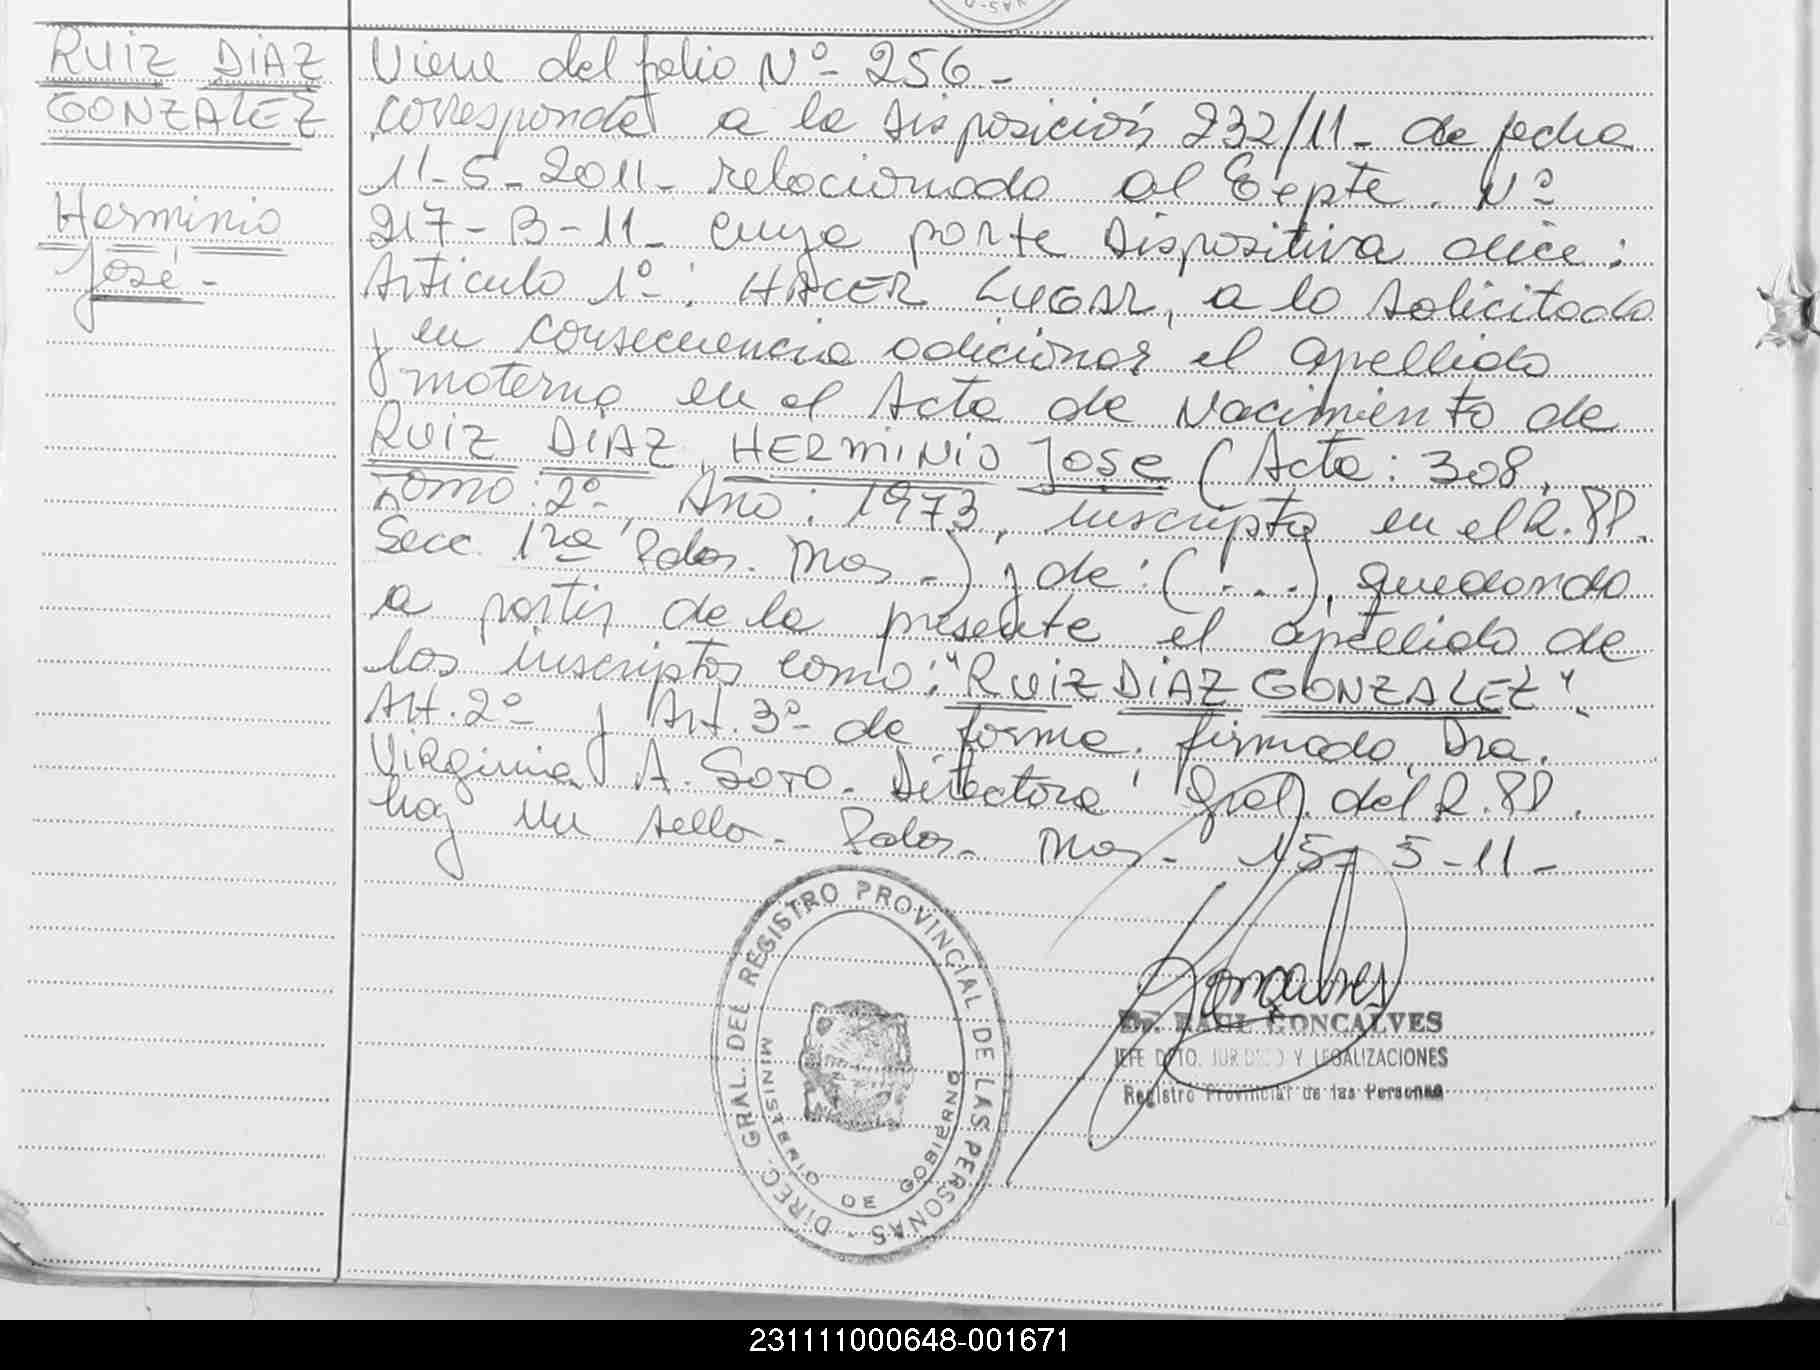 RUIZ DIAZ
GONZALEZ
Herminio
José -
Viene del folio Nº 256 -
corresponde a la Disposición 232/11 - de fecha
11-5-2011 - relacionado al Expte. Nº
217-B-11 - cuya parte Dispositiva dice:
Artículo 1º: HACER LUGAR, a lo solicitado
y en consecuencia adicionar el apellido
materno en el Acta de Nacimiento de
RUIZ DIAZ, HERMINIO JOSE (Acta: 308,
Tomo: 2º, Año: 1973, inscripta en el R.PP.
Secc. 1ra Pdas. Mnes -) y de: (....), quedando
a partir de la presente el apellido de
los inscriptos como: "RUIZ DIAZ GONZALEZ".
Art. 2º y Art. 3º - de forma. firmado, Dra.
Virginia A. Soto - Directora Gral. del R.PP.
hay un sello - Pdas. Mnes - 15-5-11 -
DIREC. GRAL. DEL REGISTRO PROVINCIAL DE LAS PERSONAS -
MINISTERIO DE GOBIERNO
Gonçalves
Dr. RAUL GONCALVES
JEFE DTO. JURIDICO Y LEGALIZACIONES
Registro Provincial de las Personas
231111000648-001671